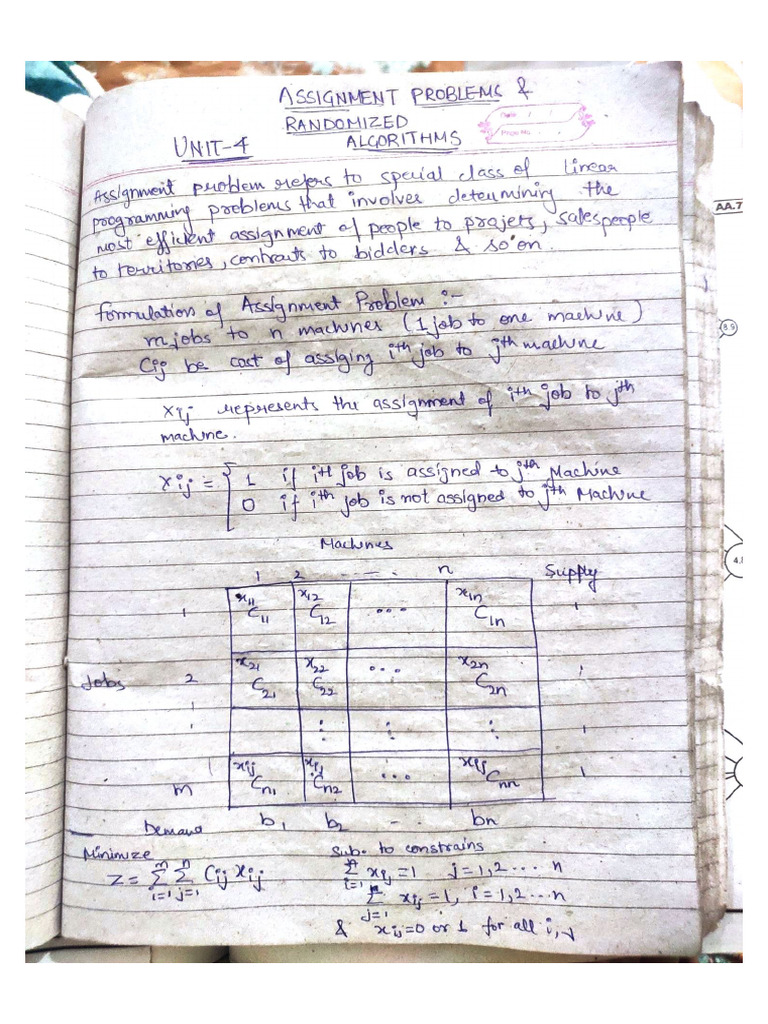 ASSIGNMENT PROBLEMS &
RANDOMIZED
UNIT-4 ALGORITHMS
Assignment problem refers to special class of linear
programming problems that involves determining the
most efficient assignment of people to projets, salespeople
to territories, contracts to bidders & so on.
formulation of Assignment Problem :-
m jobs to n machines (1 job to one machine)
Cij be cost of assiging ith job to jth machine
xij represents the assignment of ith job to jth
machine.
xij = { 1 if ith job is assigned to jth Machine
0 if ith job is not assigned to jth Machine
Machines
1 2 ---- n Supply
1 x11 x12 ... x1n 1
C11 C12 C1n
Jobs 2 x21 x22 ... x2n 1
C21 C22 C2n
⋮ ⋮ ⋮ 1
m xij xij ... xij 1
Cn1 Cn2 Cnn
Demand b1 b2 -- bn
Minimize Sub. to constrains
Z = m∑i=1 n∑j=1 Cij xij n∑i=1 xij = 1 j = 1,2 .... n
n∑j=1 xij = 1, i = 1,2 ... n
& xij = 0 or 1 for all i, j
AA.7
8.9